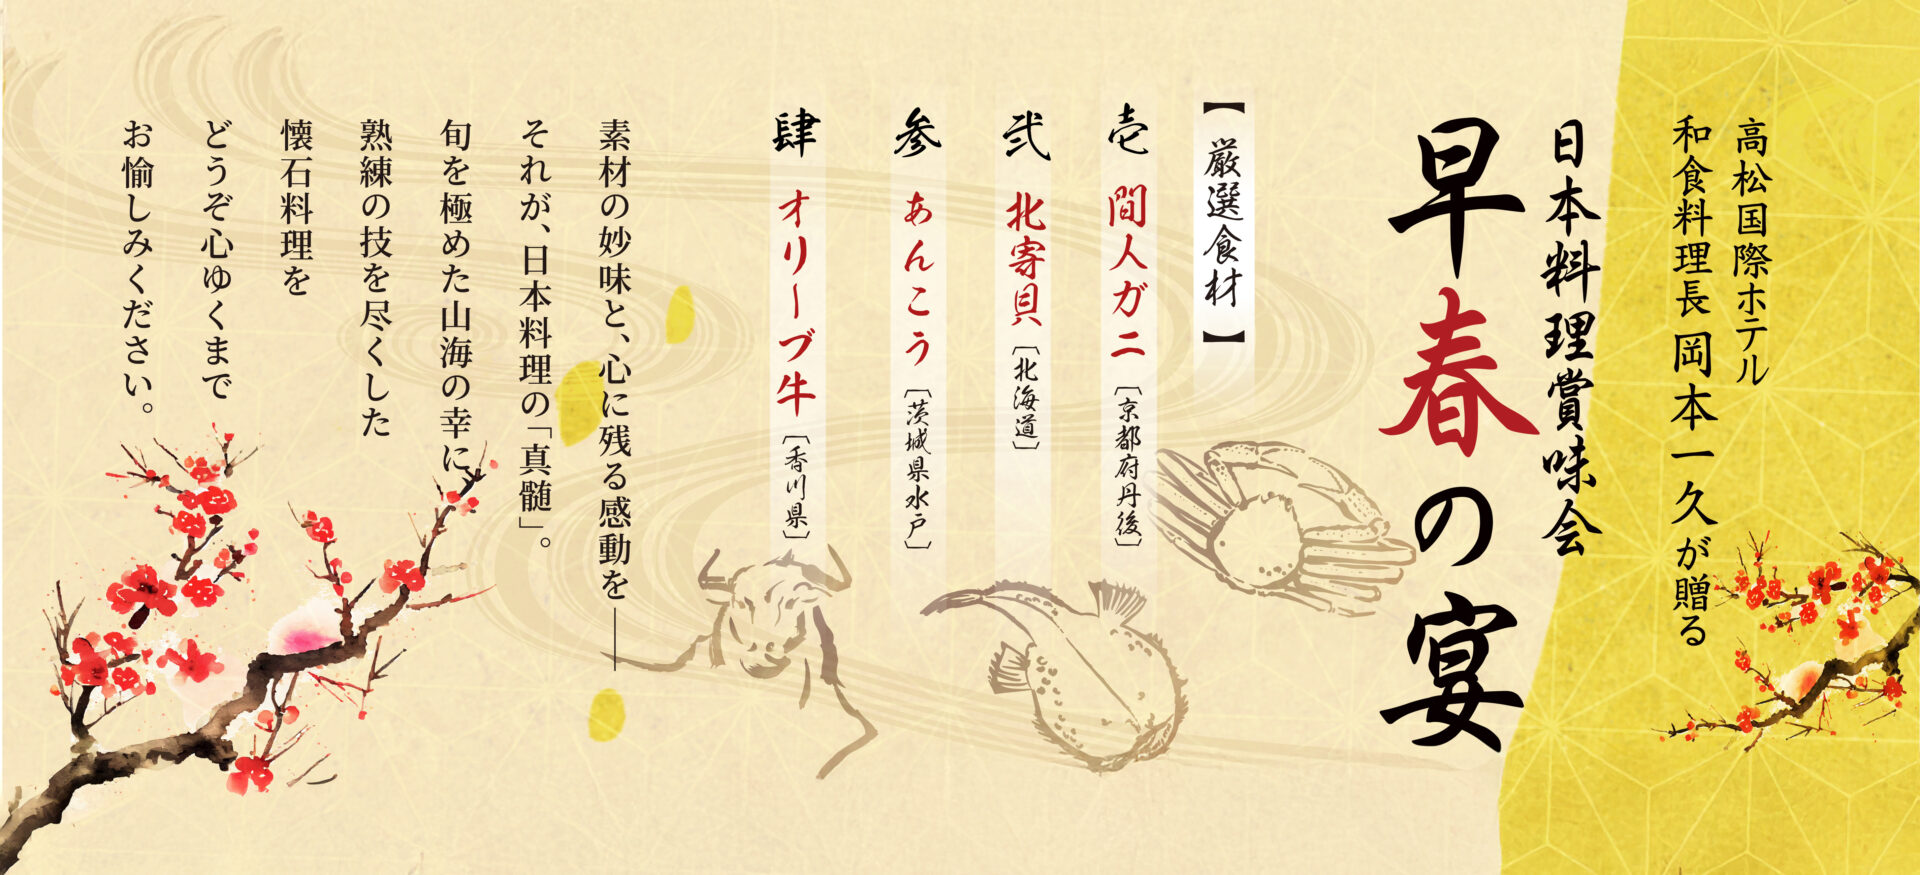 高松国際ホテル
和食料理長 岡本一久が贈る
日本料理賞味会
早春の宴
【厳選食材】
壱 間人ガニ［京都府丹後］
弐 北寄貝［北海道］
参 あんこう［茨城県水戸］
肆 オリーブ牛［香川県］
素材の妙味と、心に残る感動を――
それが、日本料理の「真髄」。
旬を極めた山海の幸に、
熟練の技を尽くした
懐石料理を
どうぞ心ゆくまで
お愉しみください。